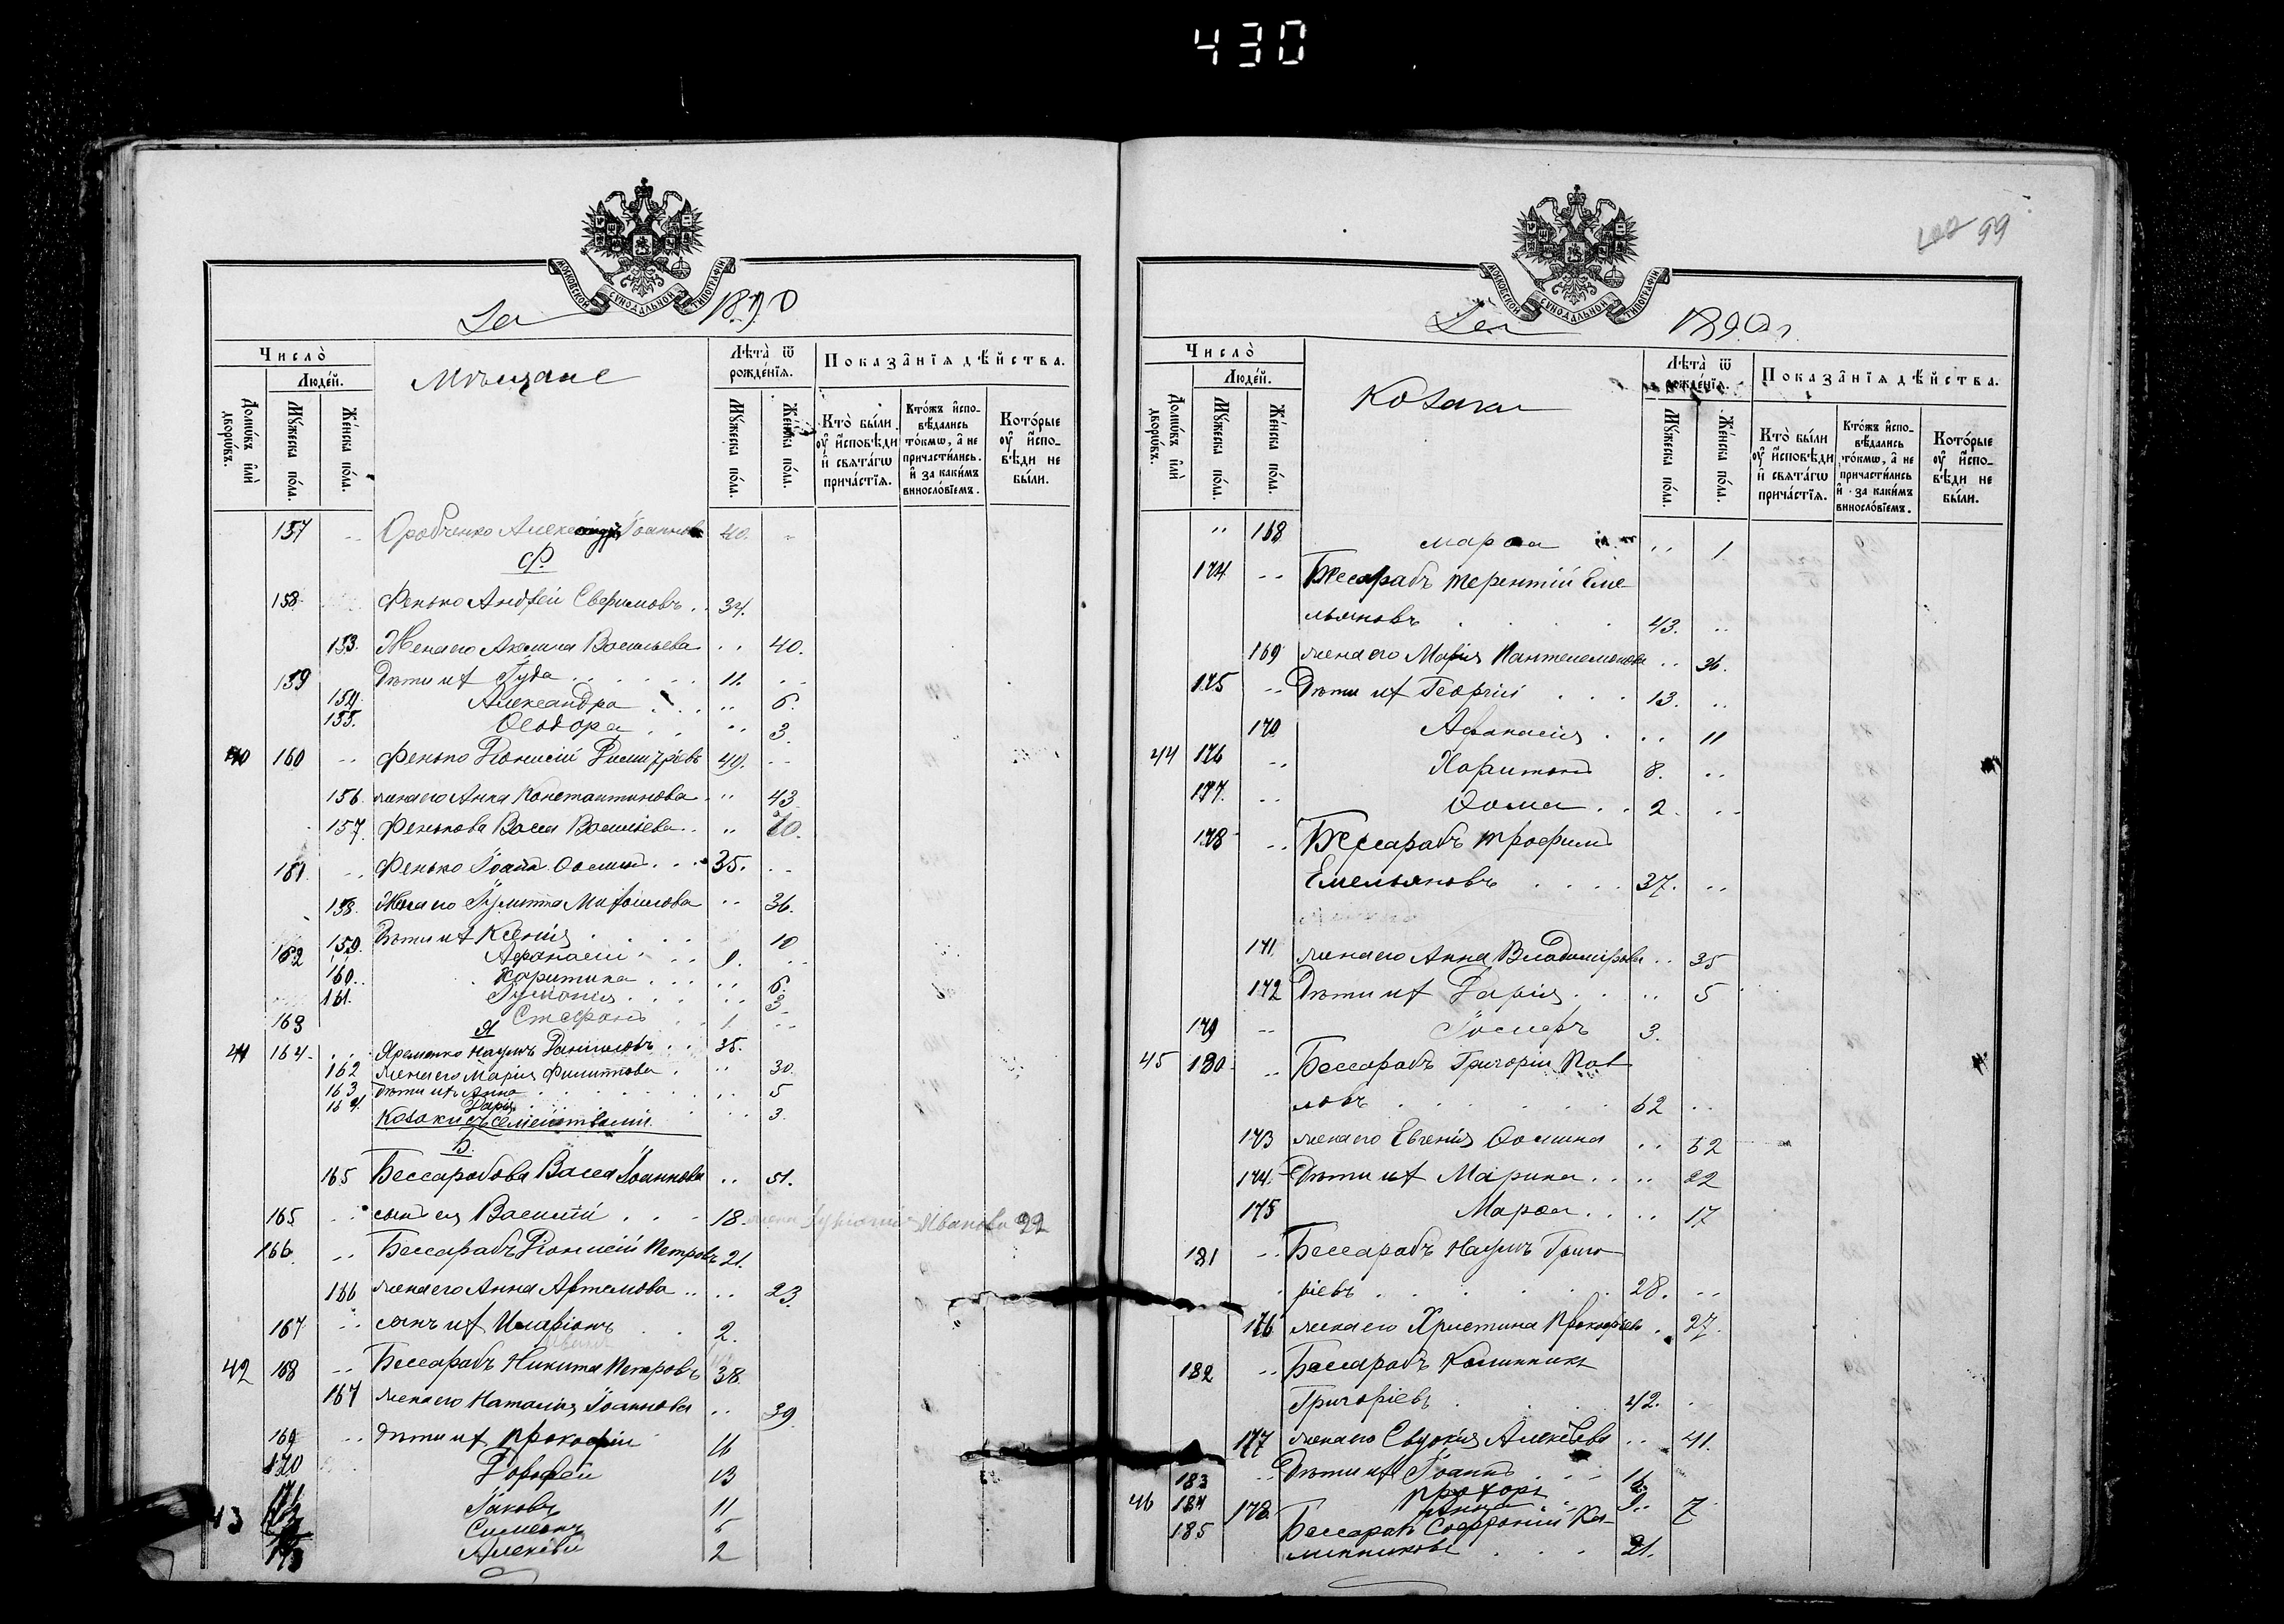 430
МОСКОВСКОЙ СѴНОДАЛЬНОЙ ТИПОГРАФІИ
За 1890
Число̀
Люде́й.
Домѡ́въ и҆лѝ дворѡ́въ.
Мꙋ́жеска по́ла.
Же́нска по́ла.
Мѣщане
Лѣта̀ ѿ рожде́нїѧ.
Мꙋ́жеска по́ла.
Же́нска по́ла.
Показа̑нїѧ дѣ́йства.
Кто̀ бы́ли ᲂу҆ и҆сповѣ́ди и҆ свѧта́гѡ причастїѧ.
Кто́жъ и҆сповѣ́дались то́кмѡ, а҆ не причасти́лись. и҆ за каки́мъ винословїемъ.
Кото́рые ᲂу҆ и҆сповѣ́ди не бы́ли.
157 Оробченко Александръ Іоанновъ 40.
Ф.
158 Фенько Андрей Евфимовъ 34.
153. Жена его Акилина Васильева 40.
159 Дѣти их Іуда 11.
154 Александра 6.
155. Ѳеодора 3.
40 160 Фенько Діонисій Димитріевъ 49.
156. жена его Анна Константинова 43.
157. Фенькова Васса Васильева 10.
161 Фенько Іоанн Ѳомин 35.
158. Жена его Іулитта Михаилова 36.
159. Дѣти их Ксенія 10
162 Афанасій 9.
160. Харитина 6.
161. Іуліанія 3.
163 Стефанъ 1.
Я
41 164. Яременко Наумъ Даниловъ 35.
162 жена его Марія Филиппова 30.
163 Дѣти ихъ Анна 5
164. Дарія 3.
Козаки съ семействами.
Б.
165 Бессарабова Васса Іоаннова 51.
165 сынъ ея Василій 18. жена Іуліанія Иванова 22
166. Бессарабъ Діонисій Петровъ 21.
166 жена его Анна Артемова 23.
167 сынъ их Иларіонъ 2.
42 168 Бессарабъ Никита Петровъ 38.
167 жена его Наталія Іоаннова 39.
169 Дѣти их Прокофій 16
170 Дорофей 13
171 Іаковъ 11
43 Симеонъ 5
173 Алексѣй 2
99
МОСКОВСКОЙ СѴНОДАЛЬНОЙ ТИПОГРАФІИ
За 1890 г.
Число̀
Люде́й.
Домѡ́въ и҆лѝ дворѡ́въ.
Мꙋ́жеска по́ла.
Же́нска по́ла.
Козаки
Лѣта̀ ѿ рожде́нїѧ.
Мꙋ́жеска по́ла.
Же́нска по́ла.
Показа̑нїѧ дѣ́йства.
Кто̀ бы́ли ᲂу҆ и҆сповѣ́ди и҆ свѧта́гѡ прича́стїѧ.
Кто́жъ и҆сповѣ́дались то́кмѡ, а҆ не причасти́лись и҆ за каки́мъ винословїемъ.
Кото́рые ᲂу҆ и҆сповѣ́ди не бы́ли.
168 Марѳа 1.
174 Бессарабъ Терентій Еме
льяновъ 43.
169 жена его Марія Пантелемонова 36.
175 Дѣти их Георгій 13.
170 Афанасія 11
44 176 Харитонъ 8.
177. Ѳома 2.
178 Бессарабъ Трофимъ
Емельяновъ 37.
171 жена его Анна Владимірова 35
172 Дѣти их Дарія 5
179 Іосифъ 3.
45 180. Бессарабъ Григорій Пав
ловъ 62
173 жена его Евгенія Ѳомина 52
174. Дѣти их Марина 22
175 Марѳа 17
181 Бессарабъ Наумъ Григо
ріевъ 28.
176 жена его Христина Прокофіева 27.
182 Бессарабъ Каллиникъ
Григоріевъ 42.
177 жена его Евдокія Алексѣева 41.
183 Дѣти их Іоаннъ 16.
46 184 Прохоръ 9.
178 Анна 7
185 Бессарабъ Софроній Ка-
линниковъ 21.